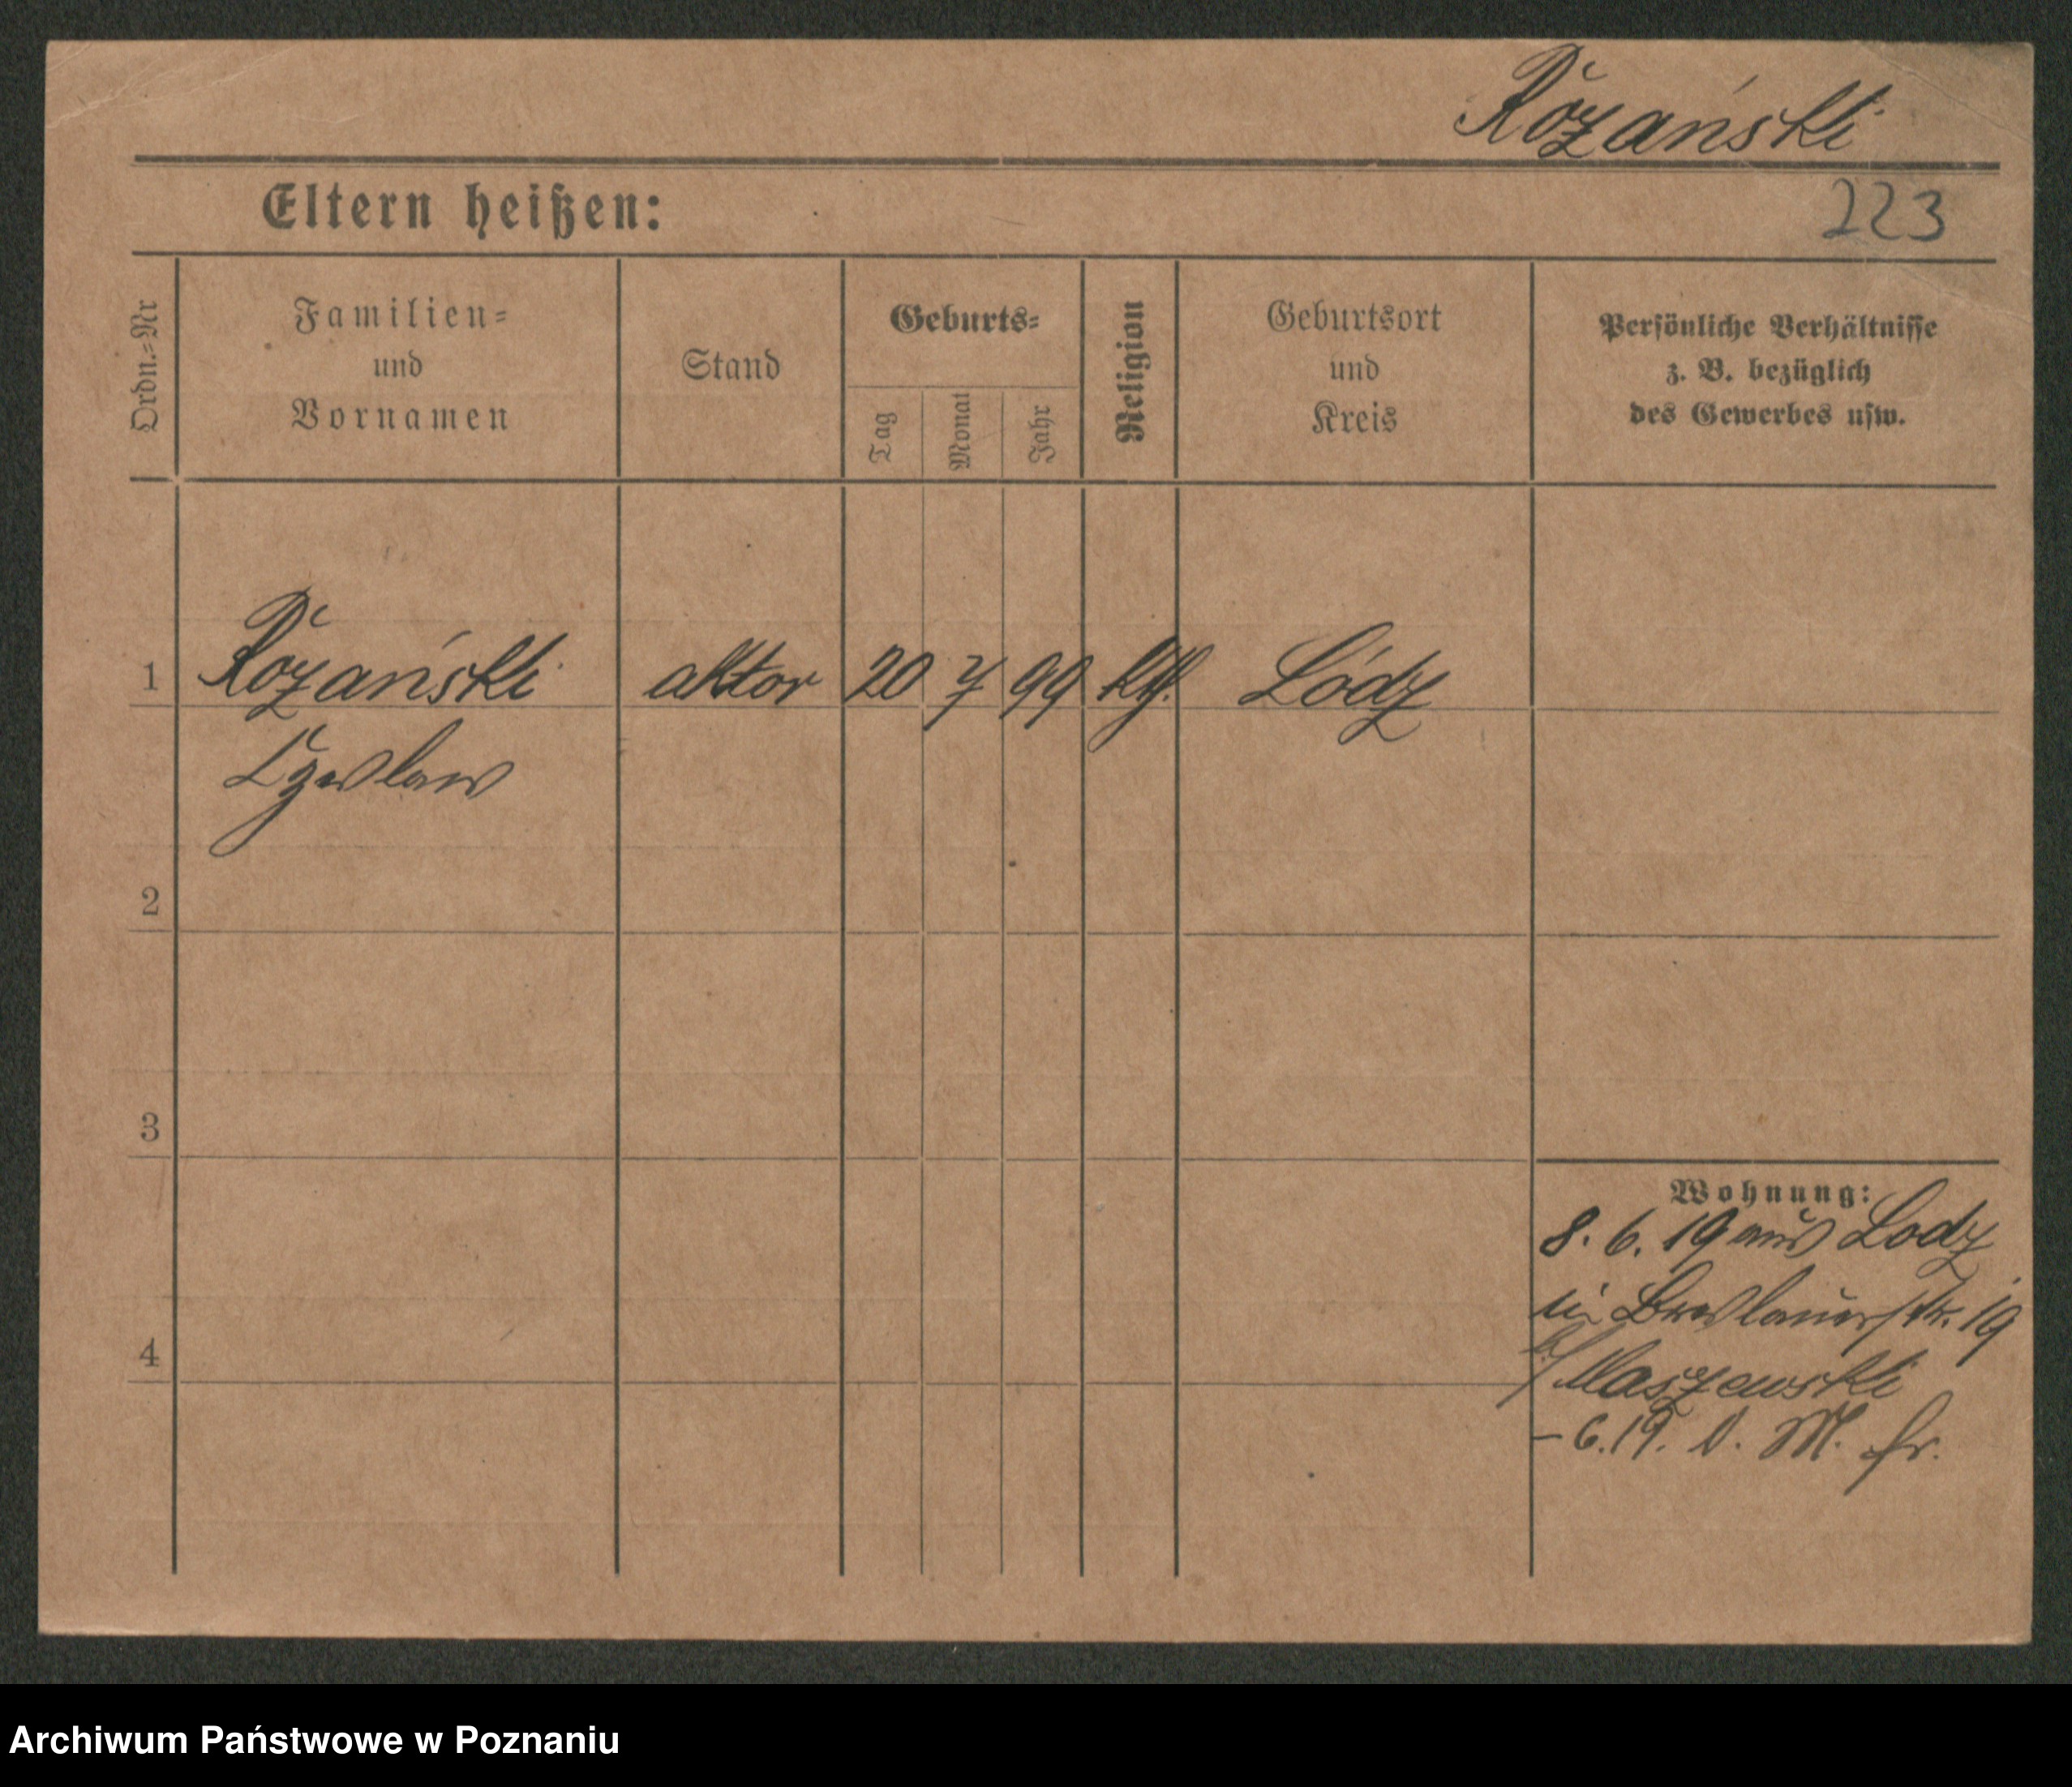 Rozański
Eltern heißen:
223
Ordn.=Nr
Familien=
und
Vornamen
Stand
Geburts=
Tag
Monat
Jahr
Religion
Geburtsort
und
Kreis
Persönliche Verhältnisse
z. B. bezüglich
des Gewerbes usw.
1 Rozański aktor 20 7 99 ktl. Lódz
Czeslaw
2
3
4
Wohnung:
8. 6. 19 aus Lodz
in Breslauerstr. 19
b/ Maszewski
- 6.19. M. fr.
Archiwum Państwowe w Poznaniu